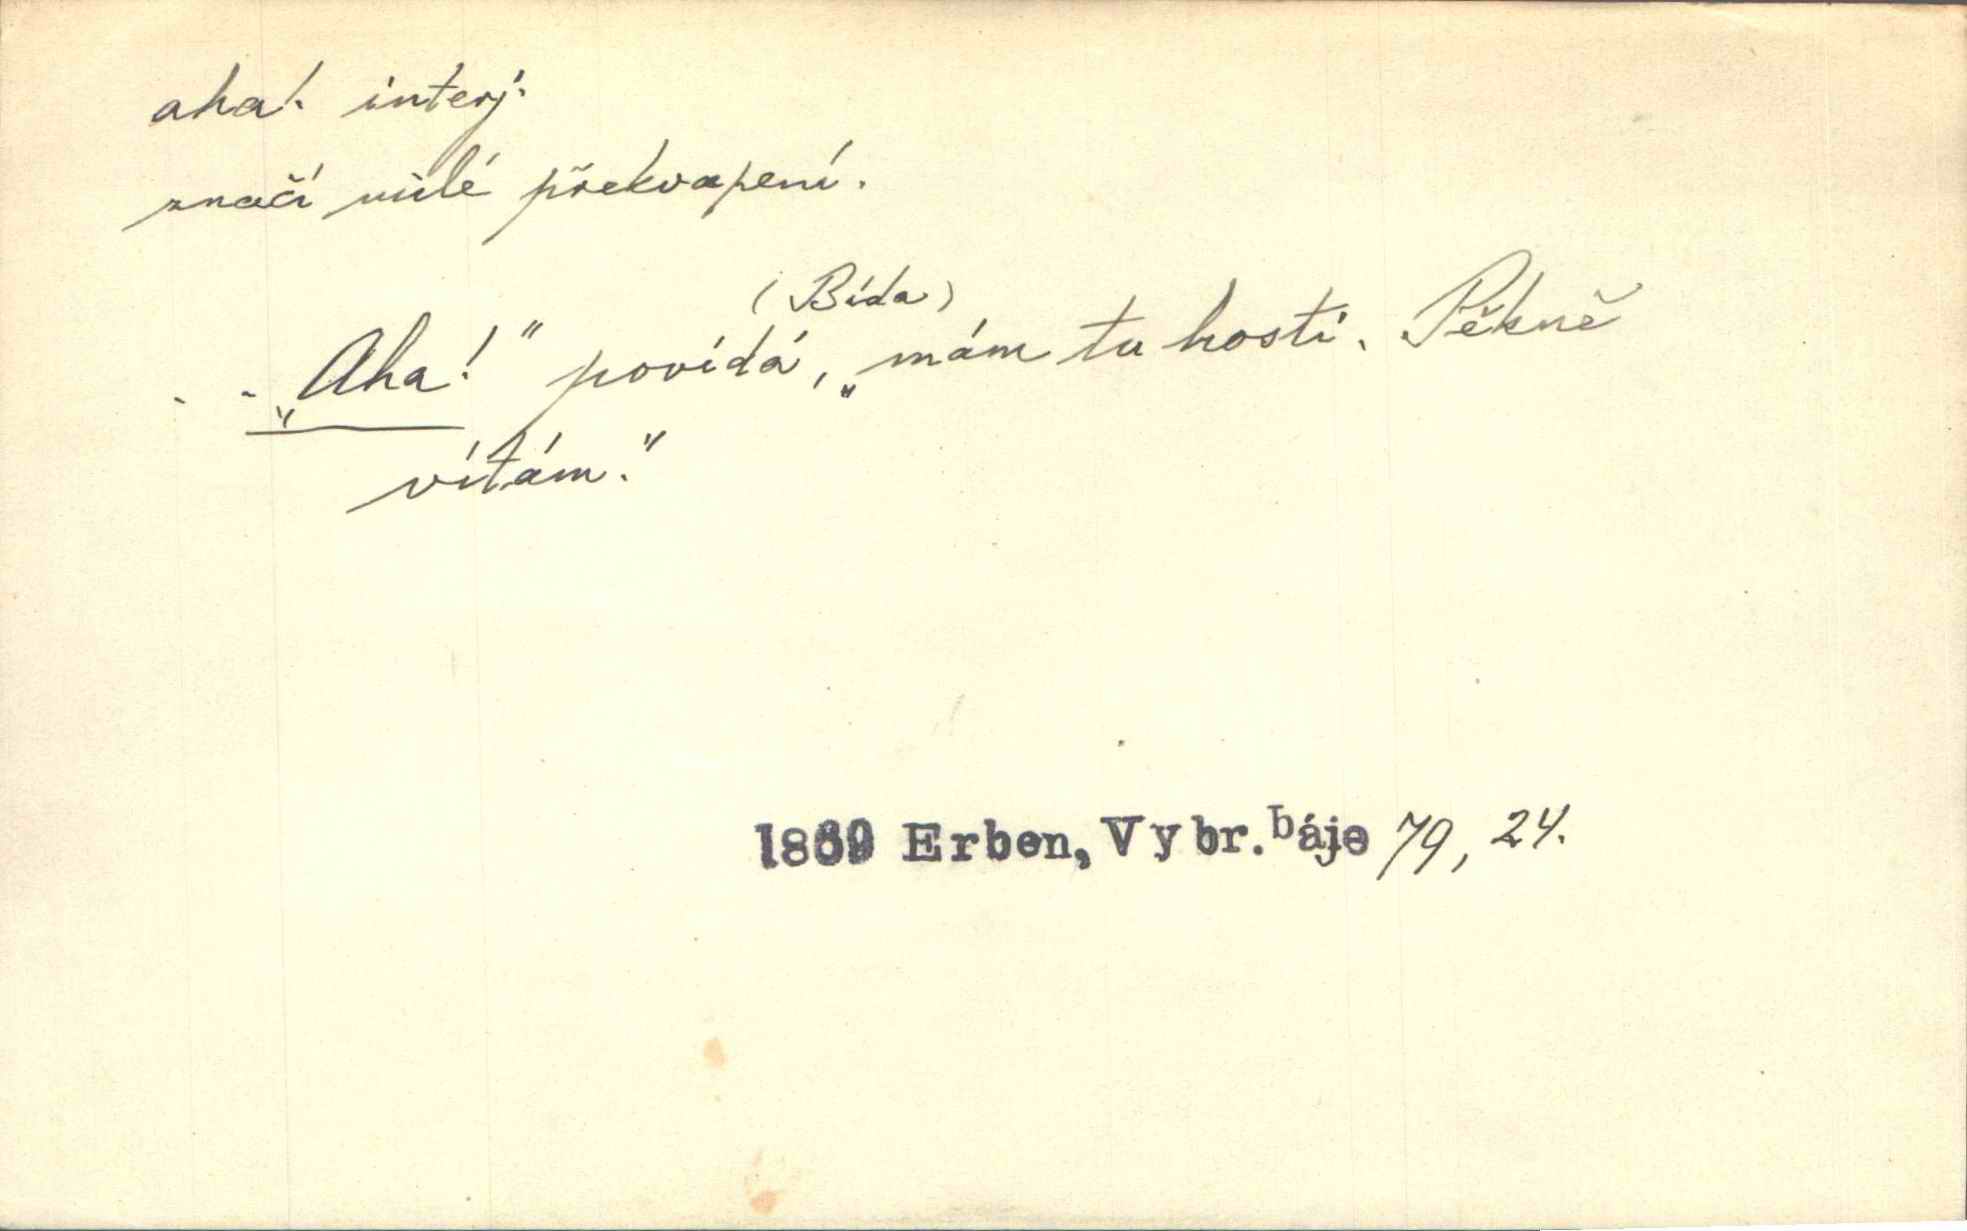 aha! interj.
značí milé překvapení.
(Bída)
. . „Aha!“ povídá, „mám tu hosti. Pěkně
vítám.“
1869 Erben, Vybr. báje 79, 24.